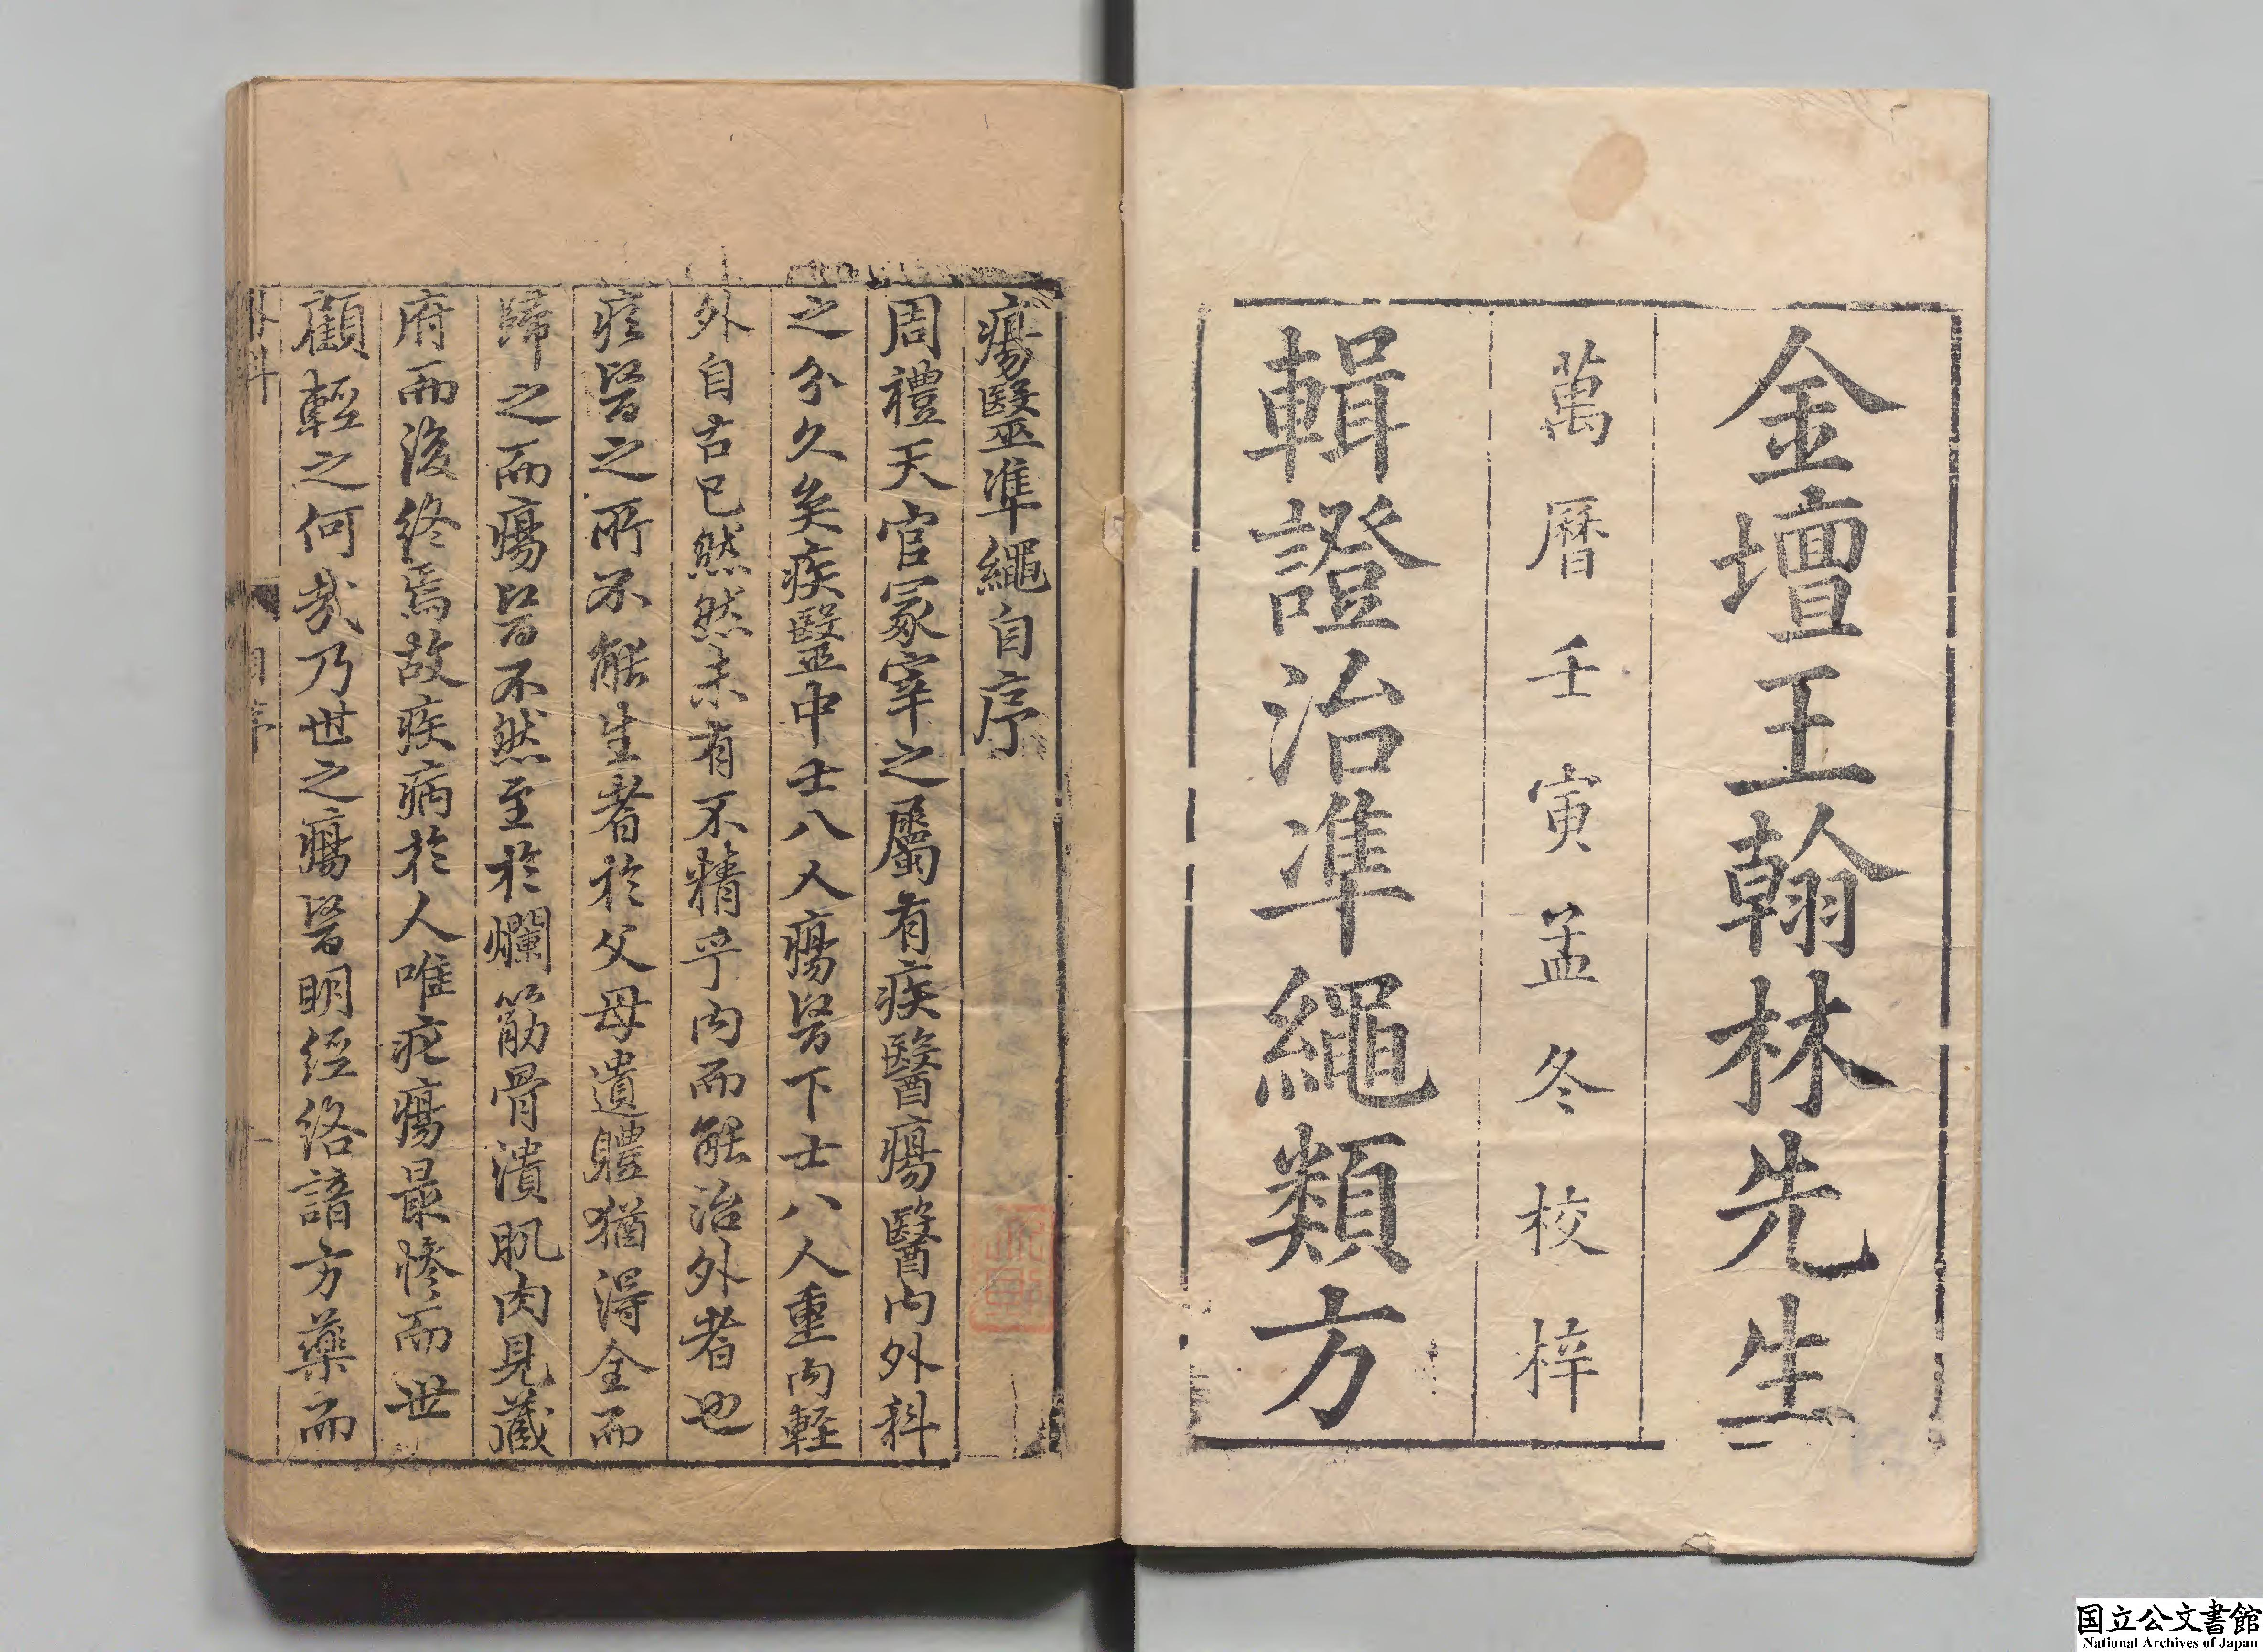 金壇王翰林先生
萬曆壬寅孟冬校梓
輯證治準繩類方
瘍毉準繩自序
周禮天官冢宰之屬有疾醫瘍醫内外科
之分久矣疾毉中士八人瘍医下士八人重内輕
外自古已然然未有不精乎内而能治外者也
疾医之所不能生者於父母遺軆猶得全而
歸之而瘍医不然至於爛筋骨潰肌肉見藏
府而後終焉故疾病於人唯疕瘍最慘而世
顧輕之何哉乃世之瘍医明經絡諳方藥而
国立公文書館
National Archives of Japan